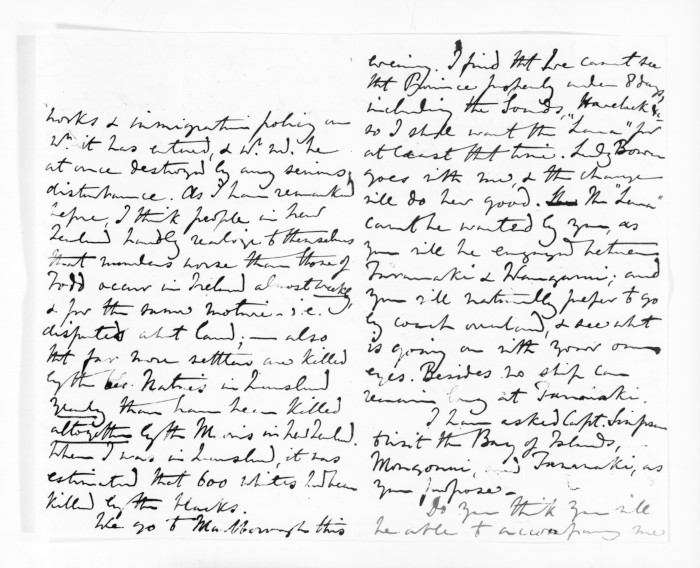 works & immigration policy on
wh. it has entered, & wh. wd. be
at once destroyed by any serious
disturbance. As I have remarked
before, I think people in New
Zealand hardly realize to themselves
that murders worse than those of
Todd occur in Ireland almost weekly,
& for the same motive - i.e.
disputes abt land; - also
tht far more settlers are killed
by the Natives in Queensland
yearly than have been killed
altogether by the Maoris in New Zealand.
When I was in Queensland, it was
estimated that 600 whites had been
killed by the blacks.
We go to Marlborough this
evening. I find tht we cannot see
tht Province properly under 8 days,
including the Sounds, Havelock &c
so I shall want the "Luna" for
at least tht time. Lady Bowen
goes with me, & the change
will do her good. The "Luna"
cannot be wanted by you, as
you will be engaged between
Taranaki & Wanganui; and
you will naturally prefer to go
by coach overland, & see what
is going on with your own
eyes. Besides no ship can
remain long at Taranaki.
I have asked Capt. Simpson
to visit the Bay of Islands,
Mongonui, and Taranaki, as
you propose -
Do you think you will
be able to accompany me